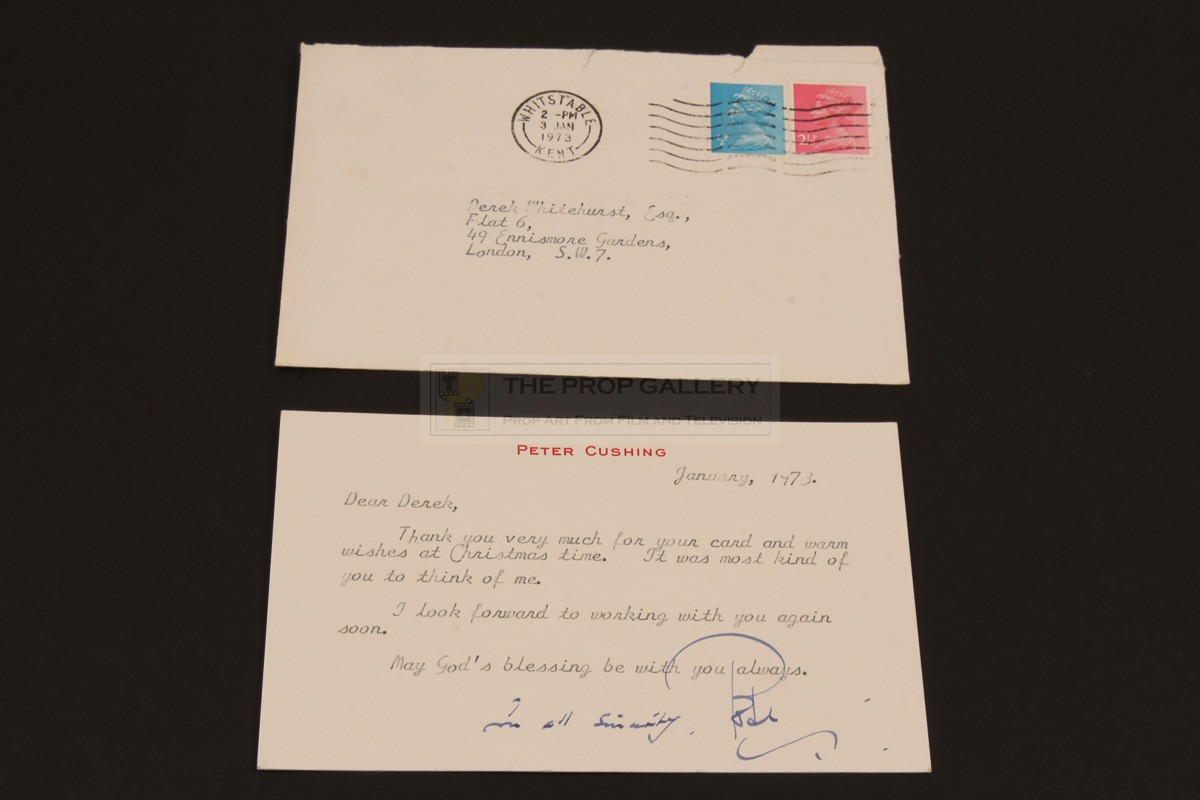 WHITSTABLE
2 -PM
3 JAN
1973
KENT
2½
Derek Whitehurst, Esq.,
Flat 6,
49 Ennismore Gardens,
London, S.W.7.
THE PROP GALLERY
PROP ART FROM FILM AND TELEVISION
PETER CUSHING
January, 1973.
Dear Derek,
Thank you very much for your card and warm
wishes at Christmas time. It was most kind of
you to think of me.
I look forward to working with you again
soon.
May God's blessing be with you always.
In all sincerity, Peter